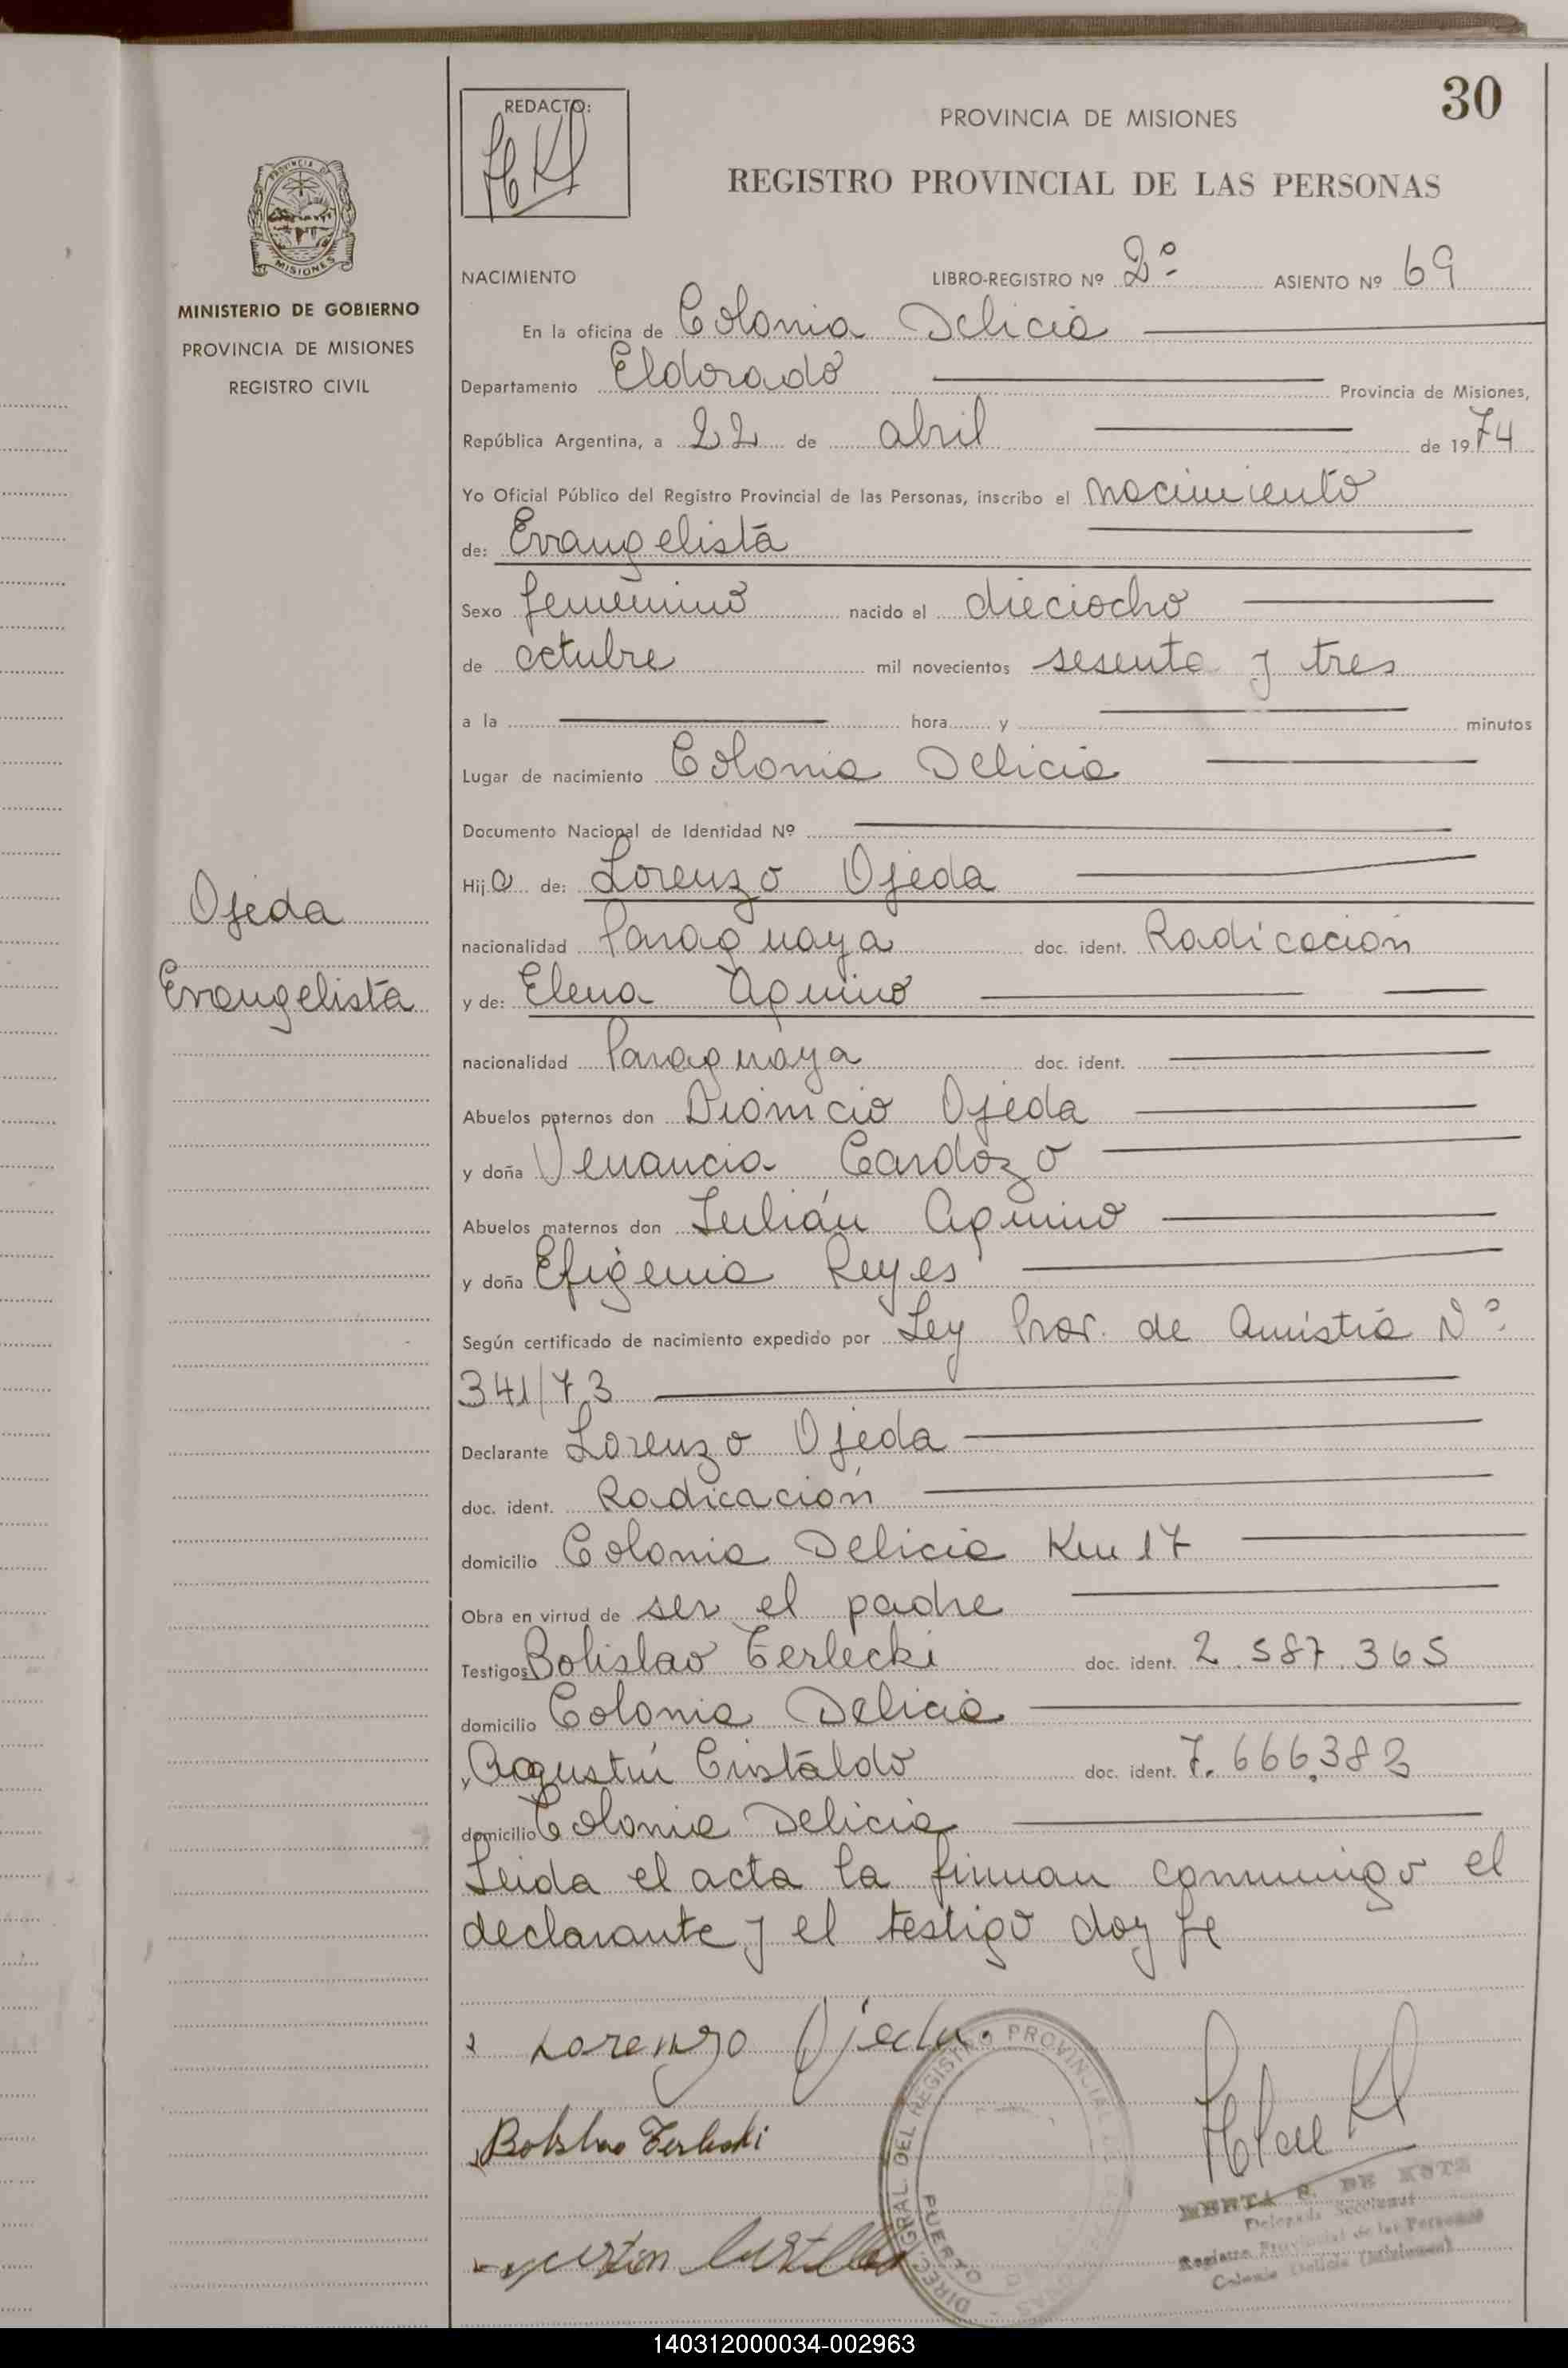 30
REDACTO:
PROVINCIA DE MISIONES
REGISTRO PROVINCIAL DE LAS PERSONAS
PROVINCIA
MISIONES
MINISTERIO DE GOBIERNO
PROVINCIA DE MISIONES
REGISTRO CIVIL
NACIMIENTO LIBRO-REGISTRO Nº 2º ASIENTO Nº 69
En la oficina de Colonia Delicia
Departamento Eldorado Provincia de Misiones,
República Argentina, a 22 de abril de 1974
Yo Oficial Público del Registro Provincial de las Personas, inscribo el nacimiento
de: Evangelista
Sexo femenino nacido el dieciocho
de octubre mil novecientos sesenta y tres
a la hora y minutos
Lugar de nacimiento Colonia Delicia
Documento Nacional de Identidad Nº
Hija de: Lorenzo Ojeda
Ojeda
nacionalidad Paraguaya doc. ident. Radicación
Evangelista
y de: Elena Aquino
nacionalidad Paraguaya doc. ident.
Abuelos paternos don Dionicio Ojeda
y doña Venancia Cardozo
Abuelos maternos don Julián Aquino
y doña Efigenia Reyes
Según certificado de nacimiento expedido por Ley Prov. de Amistía Nº
341/73
Declarante Lorenzo Ojeda
doc. ident. Radicación
domicilio Colonia Delicia Km 17
Obra en virtud de ser el padre
Testigos Bolislao Terlecki doc. ident. 2.587.365
domicilio Colonia Delicia
y Agustín Cristaldo doc. ident. 7.666.382
domicilio Colonia Delicia
Leida el acta la firman conmigo el
declarante y el testigo doy fe
Lorenzo Ojeda
DIREC. GRAL. DEL REGISTRO PROVINCIAL
PUERTO
Bolislao Terlecki
DE KOTZ
Delegada Seccional
Registro Provincial de las Personas
Colonia Delicia (Misiones)
140312000034-002963